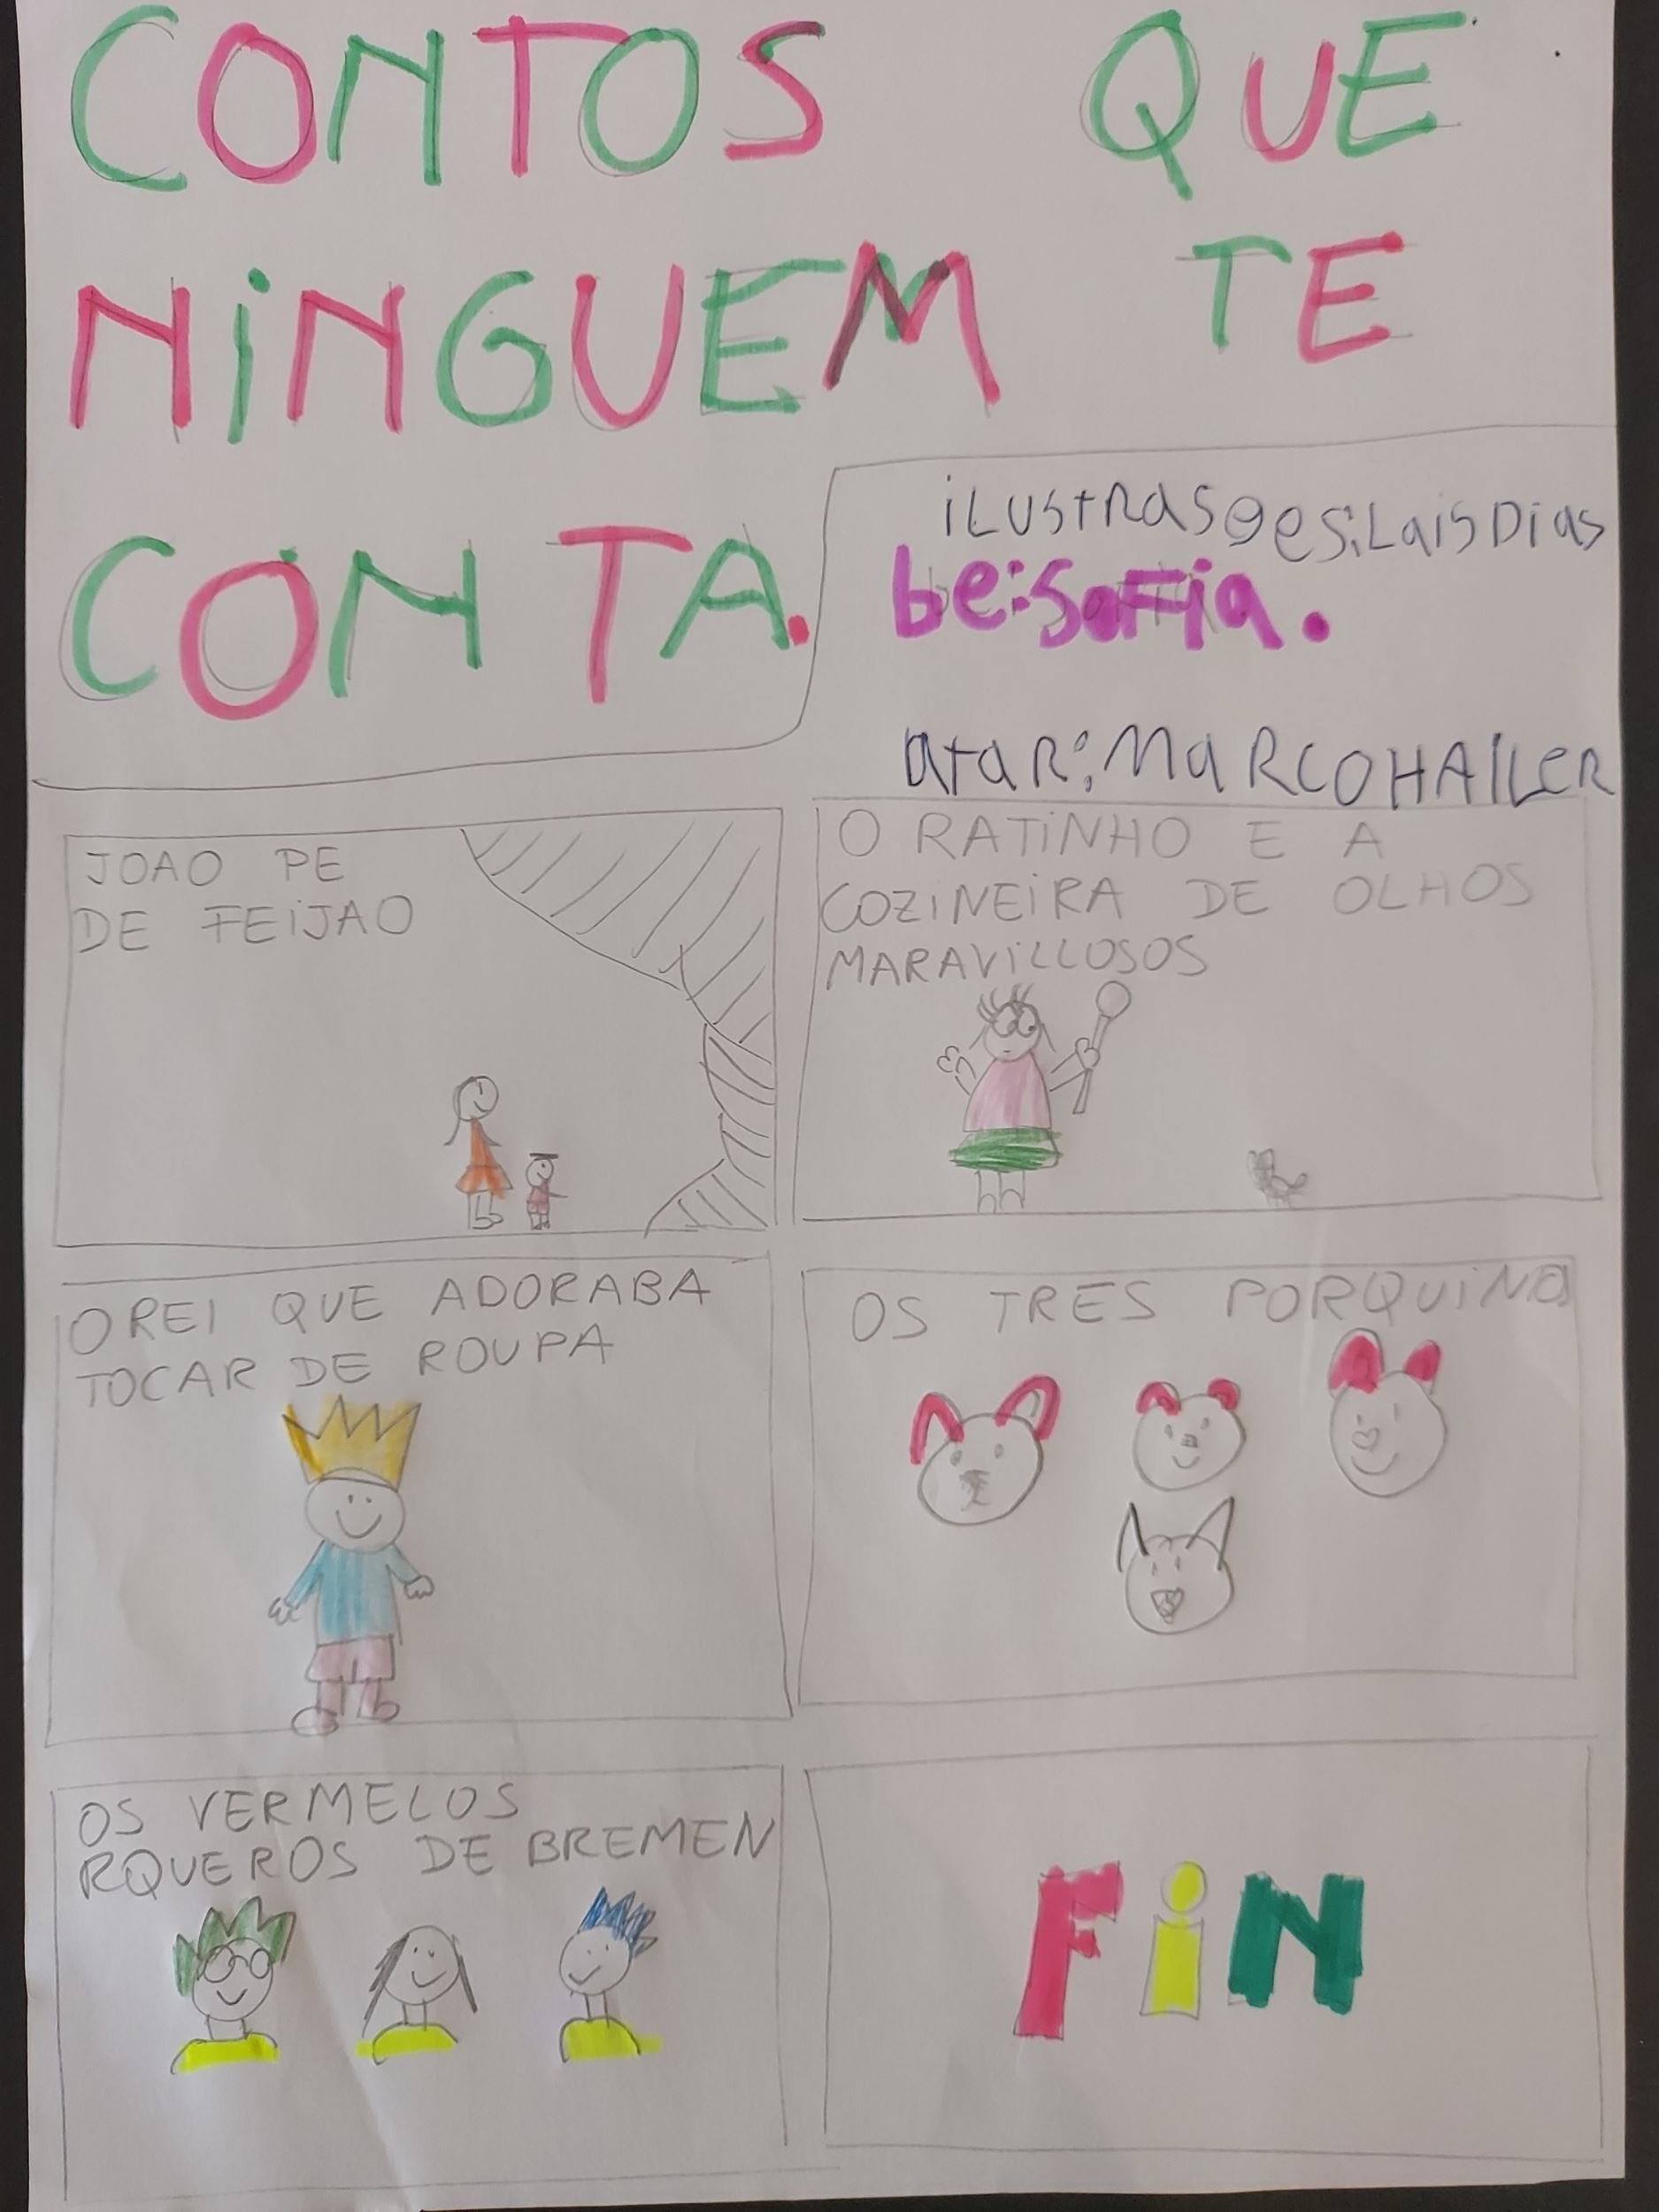 CONTOS QUE
NiNGUEM TE
CONTA.
iLUStRASOes:LaisDias
be:Sofia.
AtaR:MaRCOHAllER
JOAO PE
DE FEiJAO
O RATiNHO E A
COZiNEiRA DE OLHOS
MARAViLLOSOS
O REI QUE ADORABA
TOCAR DE ROUPA
OS TRES PORQUiNO
OS VERMELOS
RQUEROS DE BREMEN
FiN